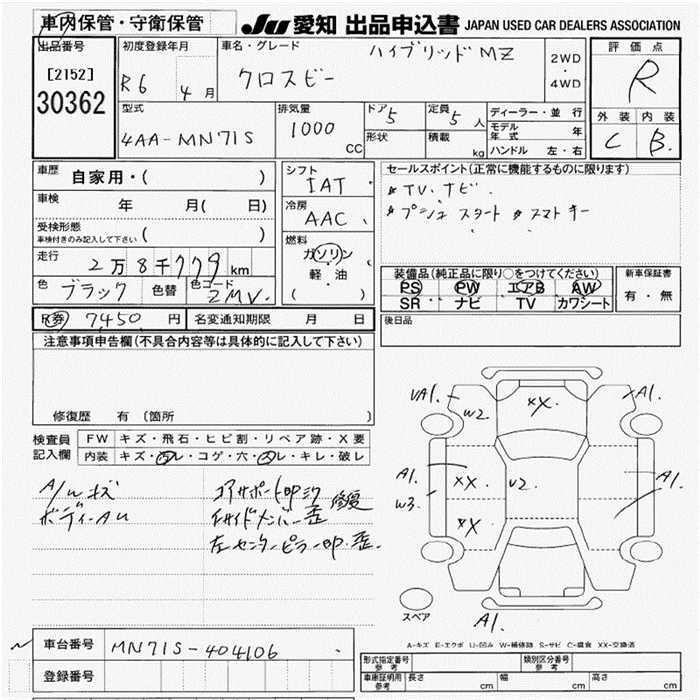 車内保管・守衛保管
JU 愛知 出品申込書 JAPAN USED CAR DEALERS ASSOCIATION
出品番号
[2152]
30362
初度登録年月
R6 4月
車名・グレード
ハイブリッド MZ
クロスビー
2WD
・
4WD
評価点
R
外装 内装
C B.
型式
4AA-MN71S
排気量
1000
CC
ドア 5
形状
定員 5 人
積載 kg
ディーラー・並行
モデル年式 年
ハンドル 左・右
車歴 自家用・( )
車検 年 月( 日)
受検形態
車検付きのみ記入して下さい ( )
走行
2万8千779km
色 ブラック 色替
色コード ZMV.
シフト
IAT
冷房
AAC
燃料
ガソリン
・
軽・油
( )
セールスポイント(正常に機能するものに限ります)
TV.ナビ.
プッシュスタート スマートキー
装備品(純正品に限り○をつけてください)
PS PW エアB AW
SR ナビ TV カワシート
新車保証書
有・無
R券 7450 円
名変通知期限 月 日
後日品
注意事項申告欄(不具合内容等は具体的に記入して下さい)
修復歴 有 〔箇所 〕
検査員記入欄
FW キズ・飛石・ヒビ割・リペア跡・X要
内装 キズ・汚レ・コゲ・穴・スレ・キレ・破レ
A/W キズ
ボディーAU
コアサポート
修復
インサイドメンバー歪
左センターピラー凹.歪.
A1.
W2.
XX.
A1.
A1.
W3.
XX.
U2.
A1.
XX.
スペア
A1.
A-キズ E-エクボ U-凹み W-補修跡 S-サビ C-腐食 XX-交換済
車台番号 MN71S-404106
登録番号
形式指定番号
参考
類別区分番号
参考
車庫証明用
参考
長さ cm
幅 cm
高さ cm